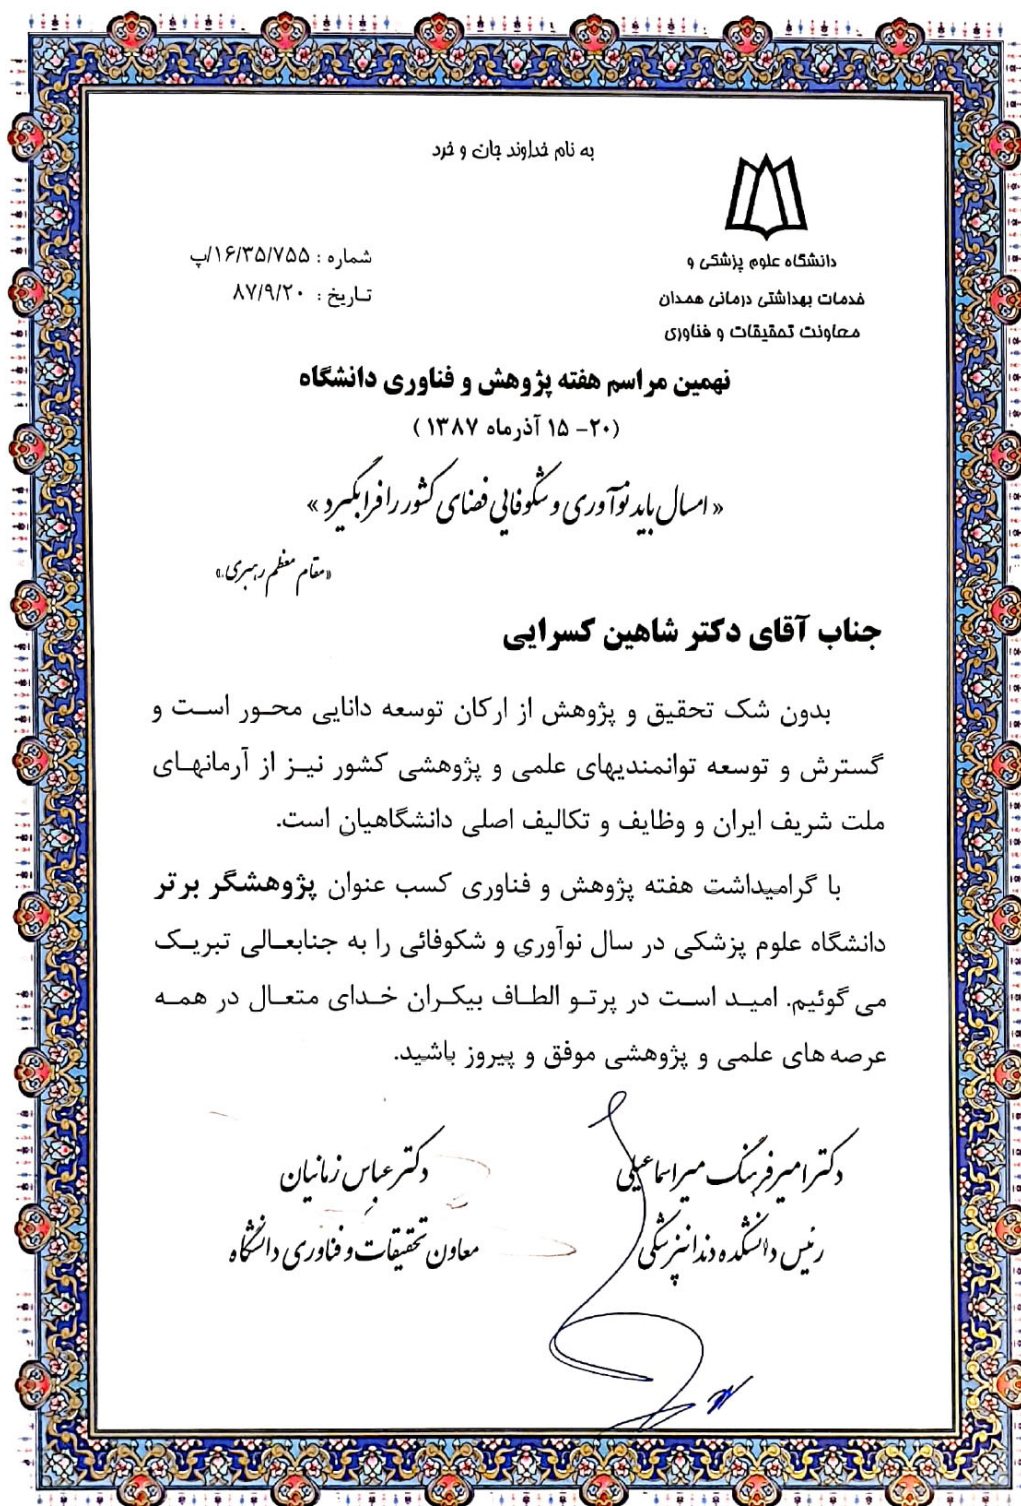 به نام خداوند جان و خرد
دانشگاه علوم پزشکی و
خدمات بهداشتی درمانی همدان
معاونت تحقیقات و فناوری
شماره : ۱۶/۳۵/۷۵۵/پ
تاریخ : ۸۷/۹/۲۰
نهمین مراسم هفته پژوهش و فناوری دانشگاه
(۲۰- ۱۵ آذر ماه ۱۳۸۷ )
« امسال باید نوآوری و شکوفایی فضای کشور را فرا بگیرد »
«مقام معظم رهبری»
جناب آقای دکتر شاهین کسرایی
بدون شک تحقیق و پژوهش از ارکان توسعه دانایی محور است و
گسترش و توسعه توانمندیهای علمی و پژوهشی کشور نیز از آرمانهای
ملت شریف ایران و وظایف و تکالیف اصلی دانشگاهیان است.
با گرامیداشت هفته پژوهش و فناوری کسب عنوان پژوهشگر برتر
دانشگاه علوم پزشکی در سال نوآوری و شکوفائی را به جنابعالی تبریک
می گوئیم. امید است در پرتو الطاف بیکران خدای متعال در همه
عرصه های علمی و پژوهشی موفق و پیروز باشید.
دکتر امیر فرهنگ میراسماعیلی
رئیس دانشکده دندانپزشکی
دکتر عباس زمانیان
معاون تحقیقات و فناوری دانشگاه